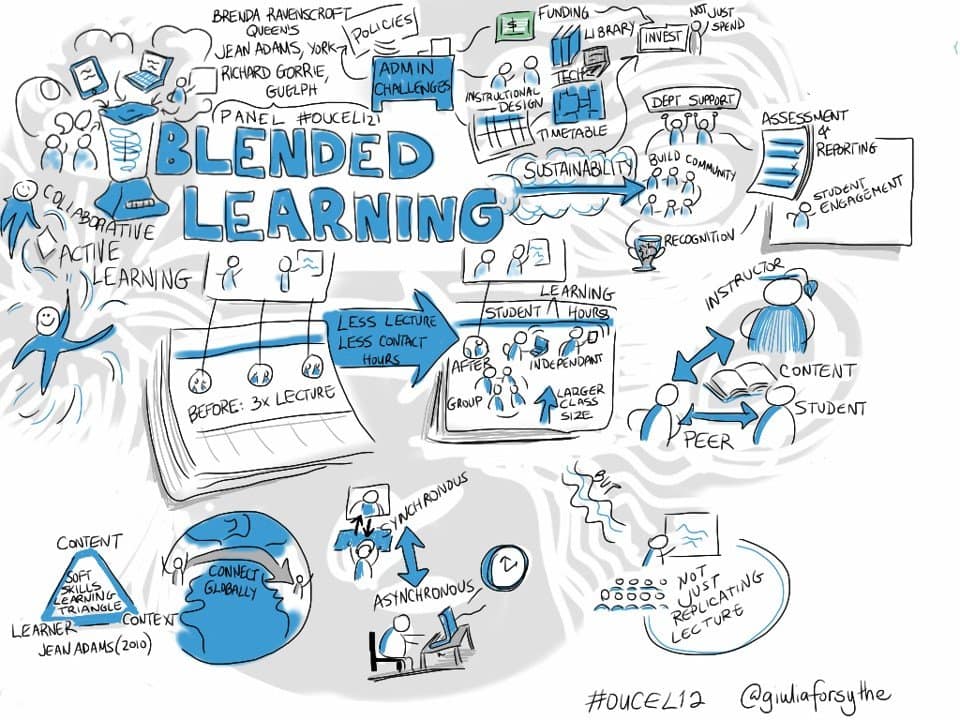 BRENDA RAVENSCROFT
QUEENS
JEAN ADAMS, YORK
RICHARD GORRIE,
GUELPH
PANEL #OUCEL121
BLENDED
LEARNING
POLICIES
ADMIN
CHALLENGES
$
FUNDING
LIBRARY
TECH
INSTRUCTIONAL
DESIGN
TIMETABLE
INVEST
NOT JUST
SPEND
SUSTAINABILITY
DEPT SUPPORT
BUILD COMMUNITY
RECOGNITION
ASSESSMENT
&
REPORTING
STUDENT
ENGAGEMENT
COLLABORATIVE
ACTIVE
LEARNING
BEFORE: 3X LECTURE
LESS LECTURE
LESS CONTACT
HOURS
LEARNING
STUDENT HOURS
AFTER
INDEPENDANT
GROUP
LARGER
CLASS
SIZE
INSTRUCTOR
CONTENT
STUDENT
PEER
CONTENT
SOFT
SKILLS
LEARNING
TRIANGLE
LEARNER
CONTEXT
JEAN ADAMS (2010)
CONNECT
GLOBALLY
SYNCHRONOUS
ASYNCHRONOUS
BUT
NOT
JUST
REPLICATING
LECTURE
#OUCEL12 @giuliaforsythe